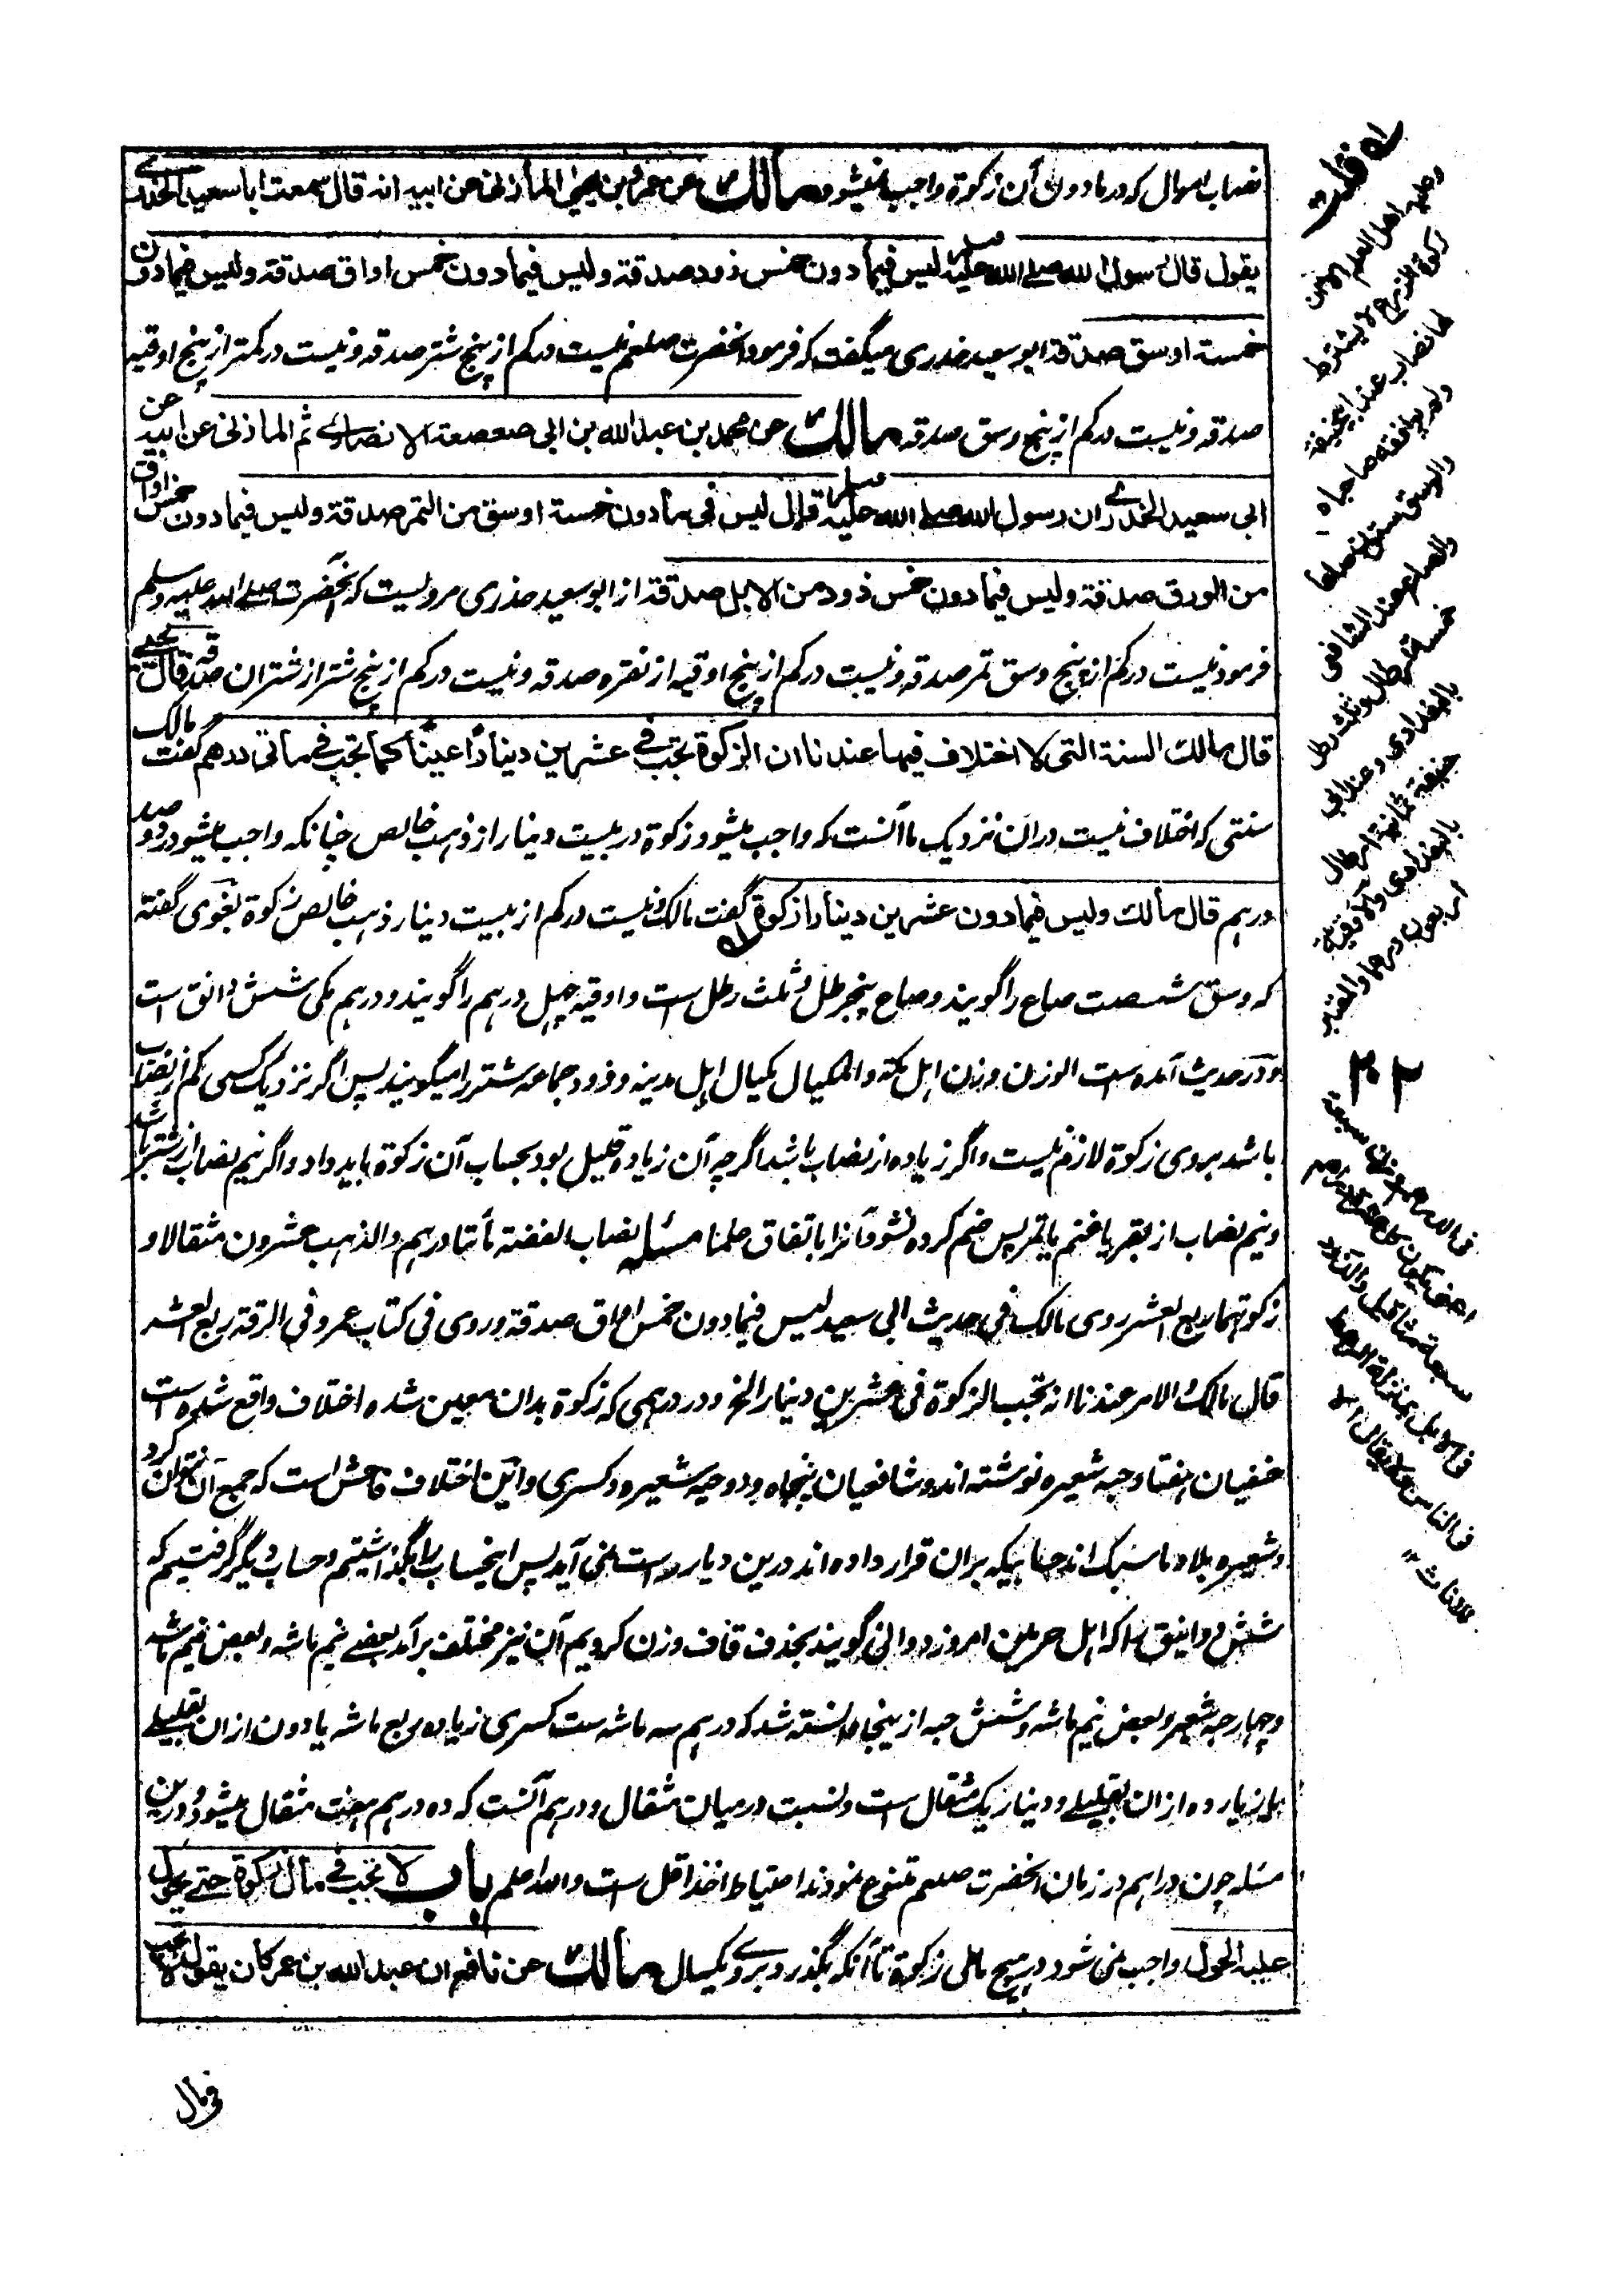 نصاب اموال که در مادون آن زکوة واجب نمیشود مالك عن عمرو بن یحیی المازنی عن ابیه انه قال سمعت ابا سعید الخدری
یقول قال رسول الله صلی الله علیه وسلم لیس فیما دون خمس ذود صدقة ولیس فیما دون خمس اواق صدقة ولیس فیما دون
خمسة اوسق صدقة ابو سعید خدری میگفت که فرمود آنحضرت صلعم نیست در کم از پنج شتر صدقه و نیست در کمتر از پنج اوقیه
صدقه و نیست در کم از پنج وسق صدقه مالك عن محمد بن عبد الله بن ابی صعصعة الانصاری ثم المازنی عن ابیه عن
ابی سعید الخدری ان رسول الله صلی الله علیه وسلم قال لیس فی ما دون خمسة اوسق من التمر صدقة ولیس فیما دون خمس اواق
من الورق صدقة ولیس فیما دون خمس ذود من الابل صدقة از ابو سعید خدری مرویست که آنحضرت صلی الله علیه وسلم
فرمود نیست در کم از پنج وسق تمر صدقه و نیست در کم از پنج اوقیه از نقره صدقه و نیست در کم از پنج شتر از شتران صدقه قال یحیی
قال مالك السنة التی لا اختلاف فیها عندنا ان الزکوة تجب فی عشرین دیناراً عیناً کما تجب فی مائتی درهم گفت مالک
سنتی که اختلاف نیست در ان نزدیک ما آنست که واجب میشود زکوة در بیست دینار از ذهب خالص چنانکه واجب میشود در دو صد
درهم قال مالك ولیس فیما دون عشرین دیناراً زکوة گفت مالک و نیست در کم از بیست دینار ذهب خالص زکوة بغوی گفته
که وسق شصت صاع را گویند و صاع پنج رطل و ثلث رطل است و اوقیه چهل درهم را گویند و درهم مکی شش دانق است
و در حدیث آمده است الوزن وزن اهل مکة والمکیال مکیال اهل مدینه و ذود جماعه شتر را میگویند پس اگر نزدیک کسی کم از نصاب
باشد بر وی زکوة لازم نیست و اگر زیاده از نصاب باشد اگرچه آن زیاده قلیل بود بحساب آن زکوة باید داد و اگر نیم نصاب از شتر باشد
و نیم نصاب از بقر یا غنم یا تمر پس ضم کرده نشود آنرا باتفاق علما مسئله نصاب الفضة مأتا درهم والذهب عشرون مثقالا و
زکوتهما ربع العشر روی مالک فی حدیث ابی سعید لیس فیما دون خمس اواق صدقة وروی فی کتاب عمر وفی الرقة ربع العشر
قال مالک الامر عندنا انه تجب الزکوة فی عشرین دینارا الخ و در درهمی که زکوة بدان معین شده اختلاف واقع شده است
حنفیان هفتاد حبه شعیره نوشته اند و شافعیان پنجاه و دو حبه شعیره و کسری و این اختلاف فاحش است که جمع آن نتوان کرد
و شعیره بلاد ما سبک اند حسابیکه بران قرار داده اند درین دیار راست نمی آید پس این حساب را بگذاشتیم و حساب دیگر گرفتیم که
شش دوانیق را که اهل حرمین امروز دوانی گویند بحذف قاف وزن کردیم آن نیز مختلف برآمد بعضے نیم ماشه و بعض نیم ماشه
و چهار حبه شعیر و بعض نیم ماشه و شش حبه ازینجا دانسته شد که درهم سه ماشه ست کسری زیاده ربع ماشه یا دون ازان بقلیلے
یا زیاده ازان بقلیلے و دینار یک مثقال ست و نسبت درمیان مثقال و درهم آنست که ده درهم هفت مثقال میشود و درین
مسئله چون دراهم در زمان آنحضرت صلعم متنوع نبودند احتیاط اخذ اقل ست والله اعلم باب لا تجب فی مال زکوة حتے یحول
علیه الحول واجب نمی شود در هیچ مالی زکوة تا آنکه بگذرد بروے یکسال مالك عن نافع ان عبد الله بن عمر کان یقول لا تجب
فی مال
له قلت
وعلیه اهل العلم الا ان
زکوة الزرع لا یشترط
لها نصاب عند ابی حنیفة
ولم یوافقه صاحباه
والوسق ستون صاعا
والصاع عند الشافعی
خمسة ارطال وثلث رطل
بالبغدادی وعند ابی
حنیفة ثمانیة ارطال
بالبغدادی والاوقیة
اربعون درهما والمعتبر
۲۰۲
فی الدرهم وزن سبعة
اعنی یکون کل عشرة دراهم
سبعة مثاقیل والذود
فی الابل بمنزلة الرهط
فی الناس
للاناث ۱۲